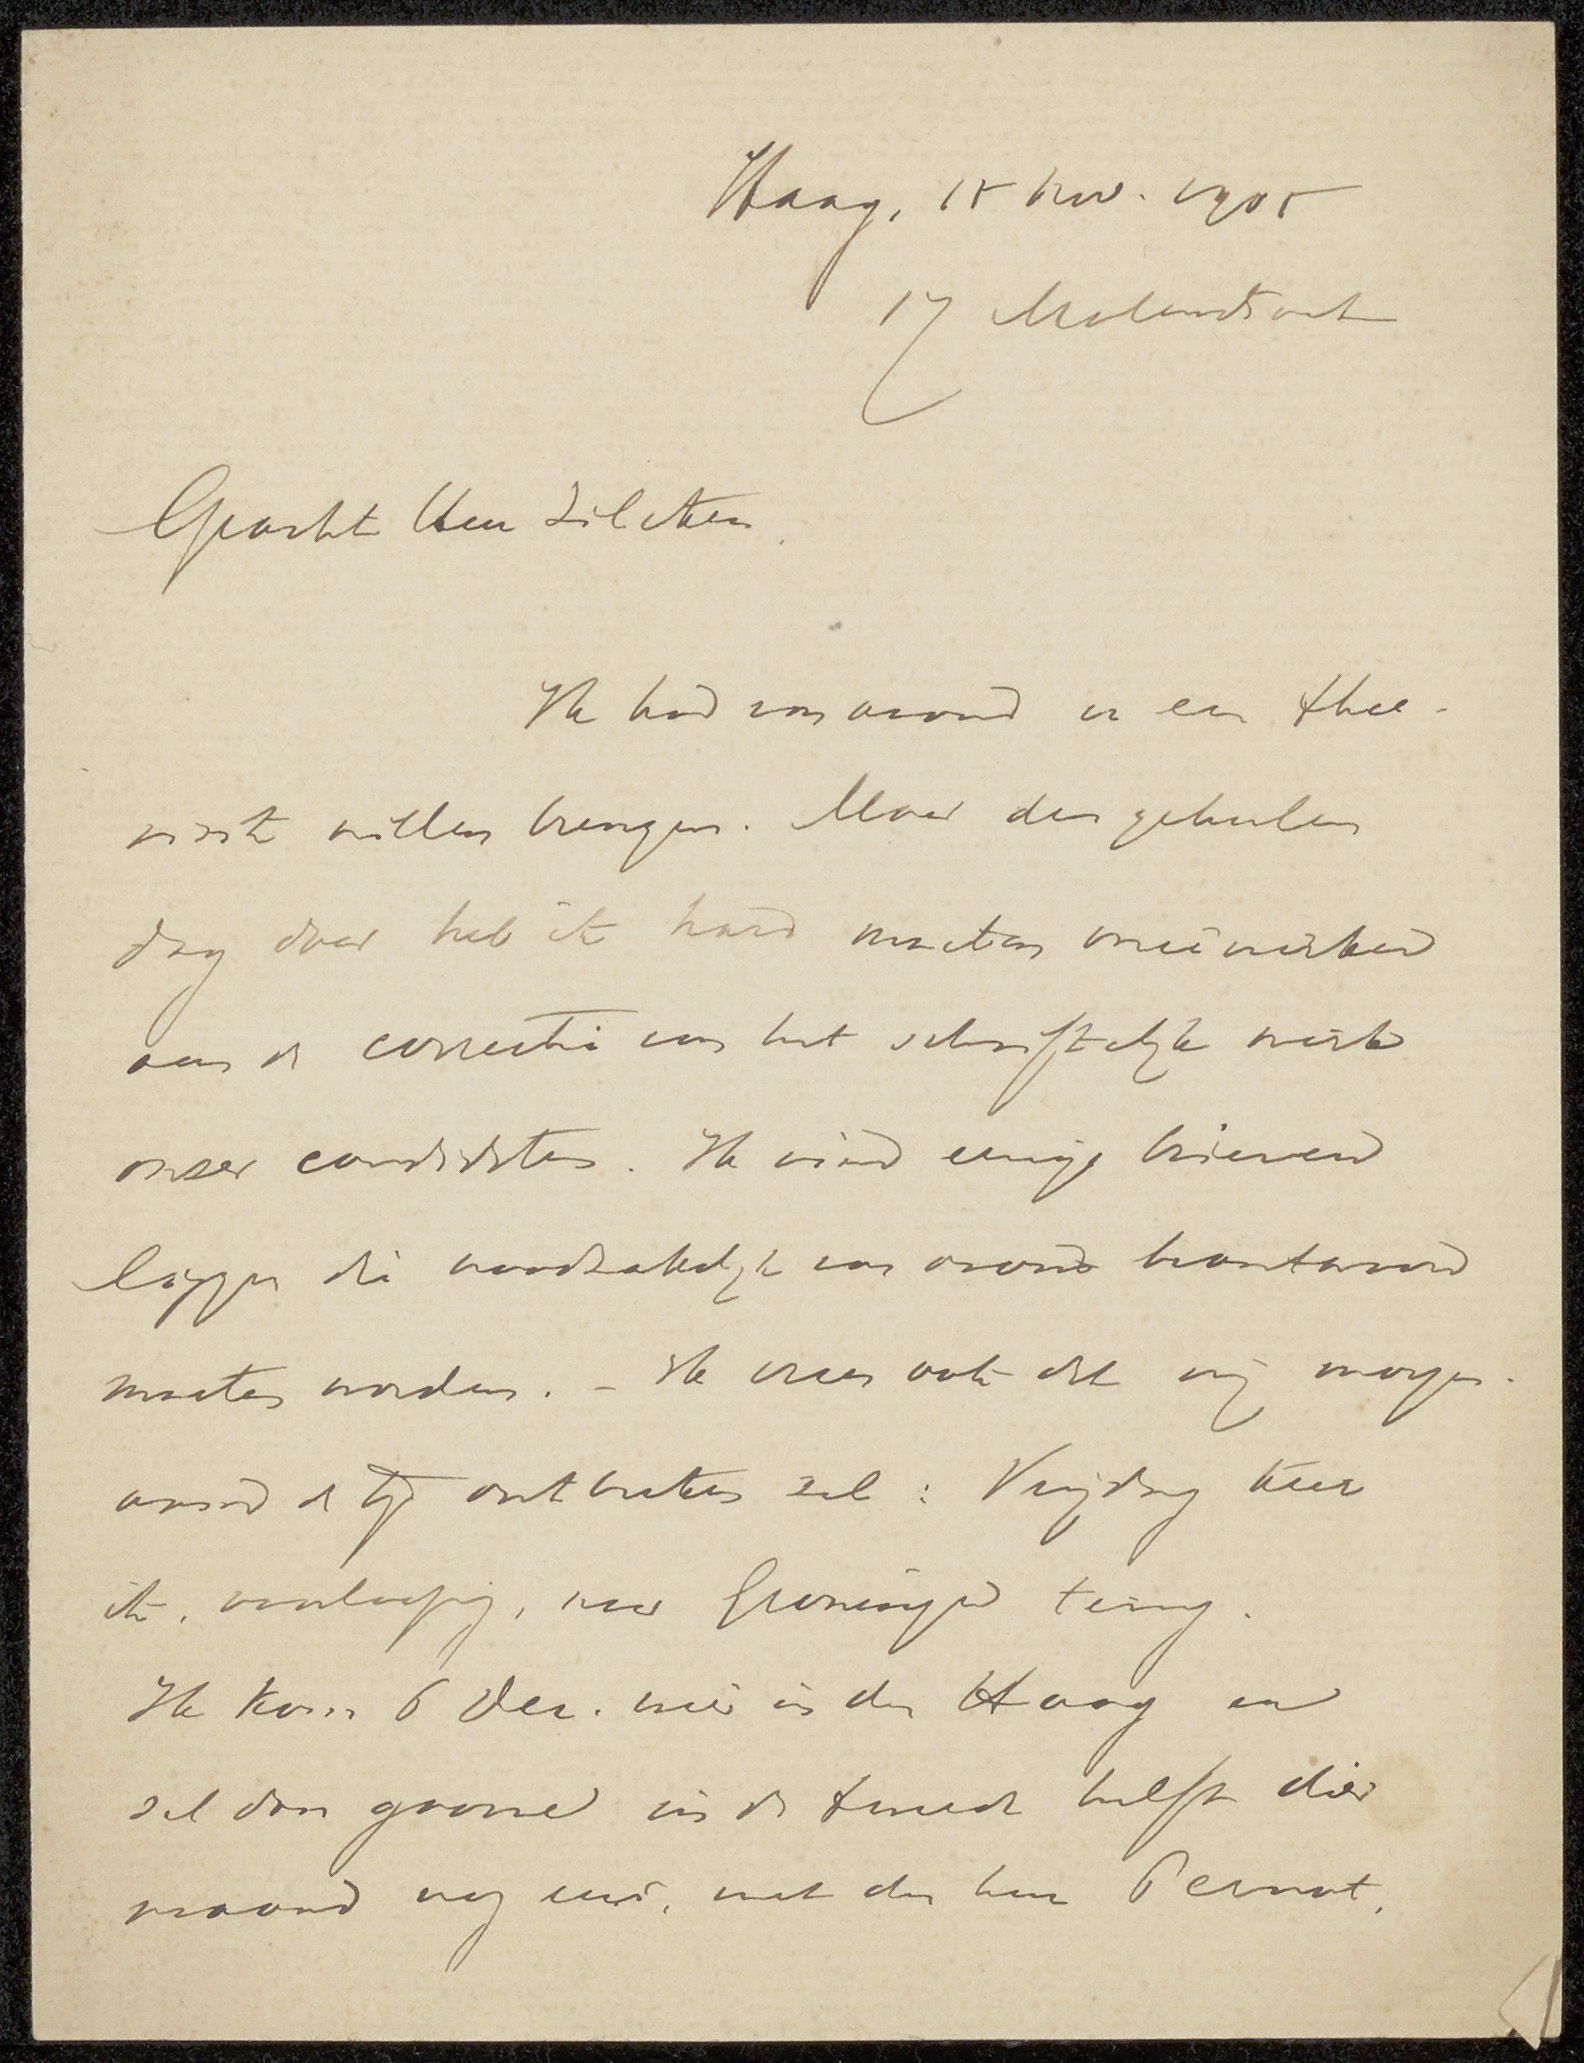 Haag, 15 Nov. 1905
17 Molenstraat
Geacht Heer Zilcken,
Ik had van avond u een thee-
visite willen brengen. Maar den geheelen
dag door heb ik hard moeten meêwerken
aan de correctie van het schriftelijk werk
onzer candidaten. Ik vind eenige brieven
liggen die noodzakelijk van avond beantwoord
moeten worden. – Ik vrees ook dat mij morgen-
avond de tijd ontbreken zal: Vrijdag keer
ik, voorloopig, naar Groningen terug.
Ik kom 6 Dec. weer in den Haag en
zal dan gaarne in de tweede helft dier
maand nog eens, met den heer Pernot,